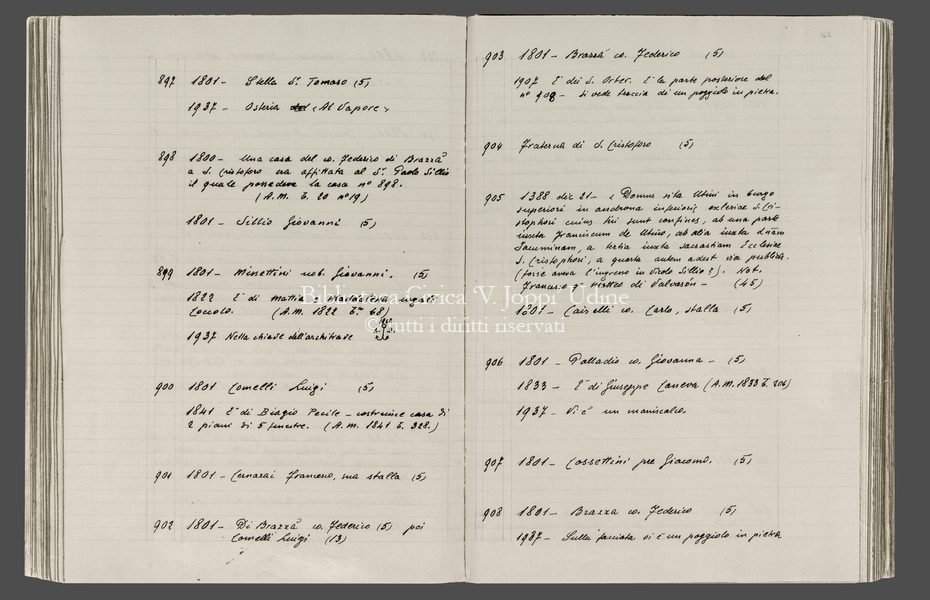 897 1801 – Stella Sr. Tomaso (5)
1937 – Osteria "Al Vapore"
898 1800 – Una casa del co. Federico di Brazzà
a S. Cristoforo era affittata al Sr. Paolo Sillio
il quale possedeva la casa nº 898.
(A.M. t. 20 nº 19)
1801 – Sillio Giovanni (5)
899 1801 – Minettini nob. Giovanni. (5)
1822 È di Mattia e Maddalena iugali
Coccolo. (A.M. 1822 t. 68)
1937 Nella chiave dell'architrave
900 1801 Comelli Luigi (5)
1841 È di Biagio Pecile – costruisce casa di
2 piani di 5 finestre. (A.M. 1841 t. 328.)
901 1801 – Cernazai Francesco, sua stalla (5)
902 1801 – Di Brazzà co. Federico (5) poi
Comelli Luigi (13)
162
903 1801 – Brazzà co. Federico (5)
1907 È dei S. Orter. È la parte posteriore del
nº 908 – Si vede traccia di un poggiolo in pietra.
904 Fraterna di S. Cristoforo (5)
905 1388 dic. 21 – "Domus sita Utini in burgo
superiori in androna inferiori ecclesiae S. Cri-
stophori cuius hii sunt confines, ab una parte
iuxta Franciscum de Utino, ab alia iuxta dnam
Jacuminam, a tertia iuxta sacrastiam Ecclesiae
S. Cristophori, a quarta autem adest via publica.
(forse aveva l'ingresso in Vicolo Sillio?). Not.
Francesco q. Matteo di Valvason – (45)
1801 – Caiselli co. Carlo, stalla (5)
906 1801 – Palladio co. Giovanna – (5)
1833 – È di Giuseppe Caneva (A.M. 1833 t. 206)
1937 – Vi è un maniscalco.
907 1801 – Cossettini pre Giacomo. (5)
908 1801 – Brazza co. Federico (5)
1937 – Sulla facciata vi è un poggiolo in pietra
Biblioteca Civica "V. Joppi" Udine
© tutti i diritti riservati